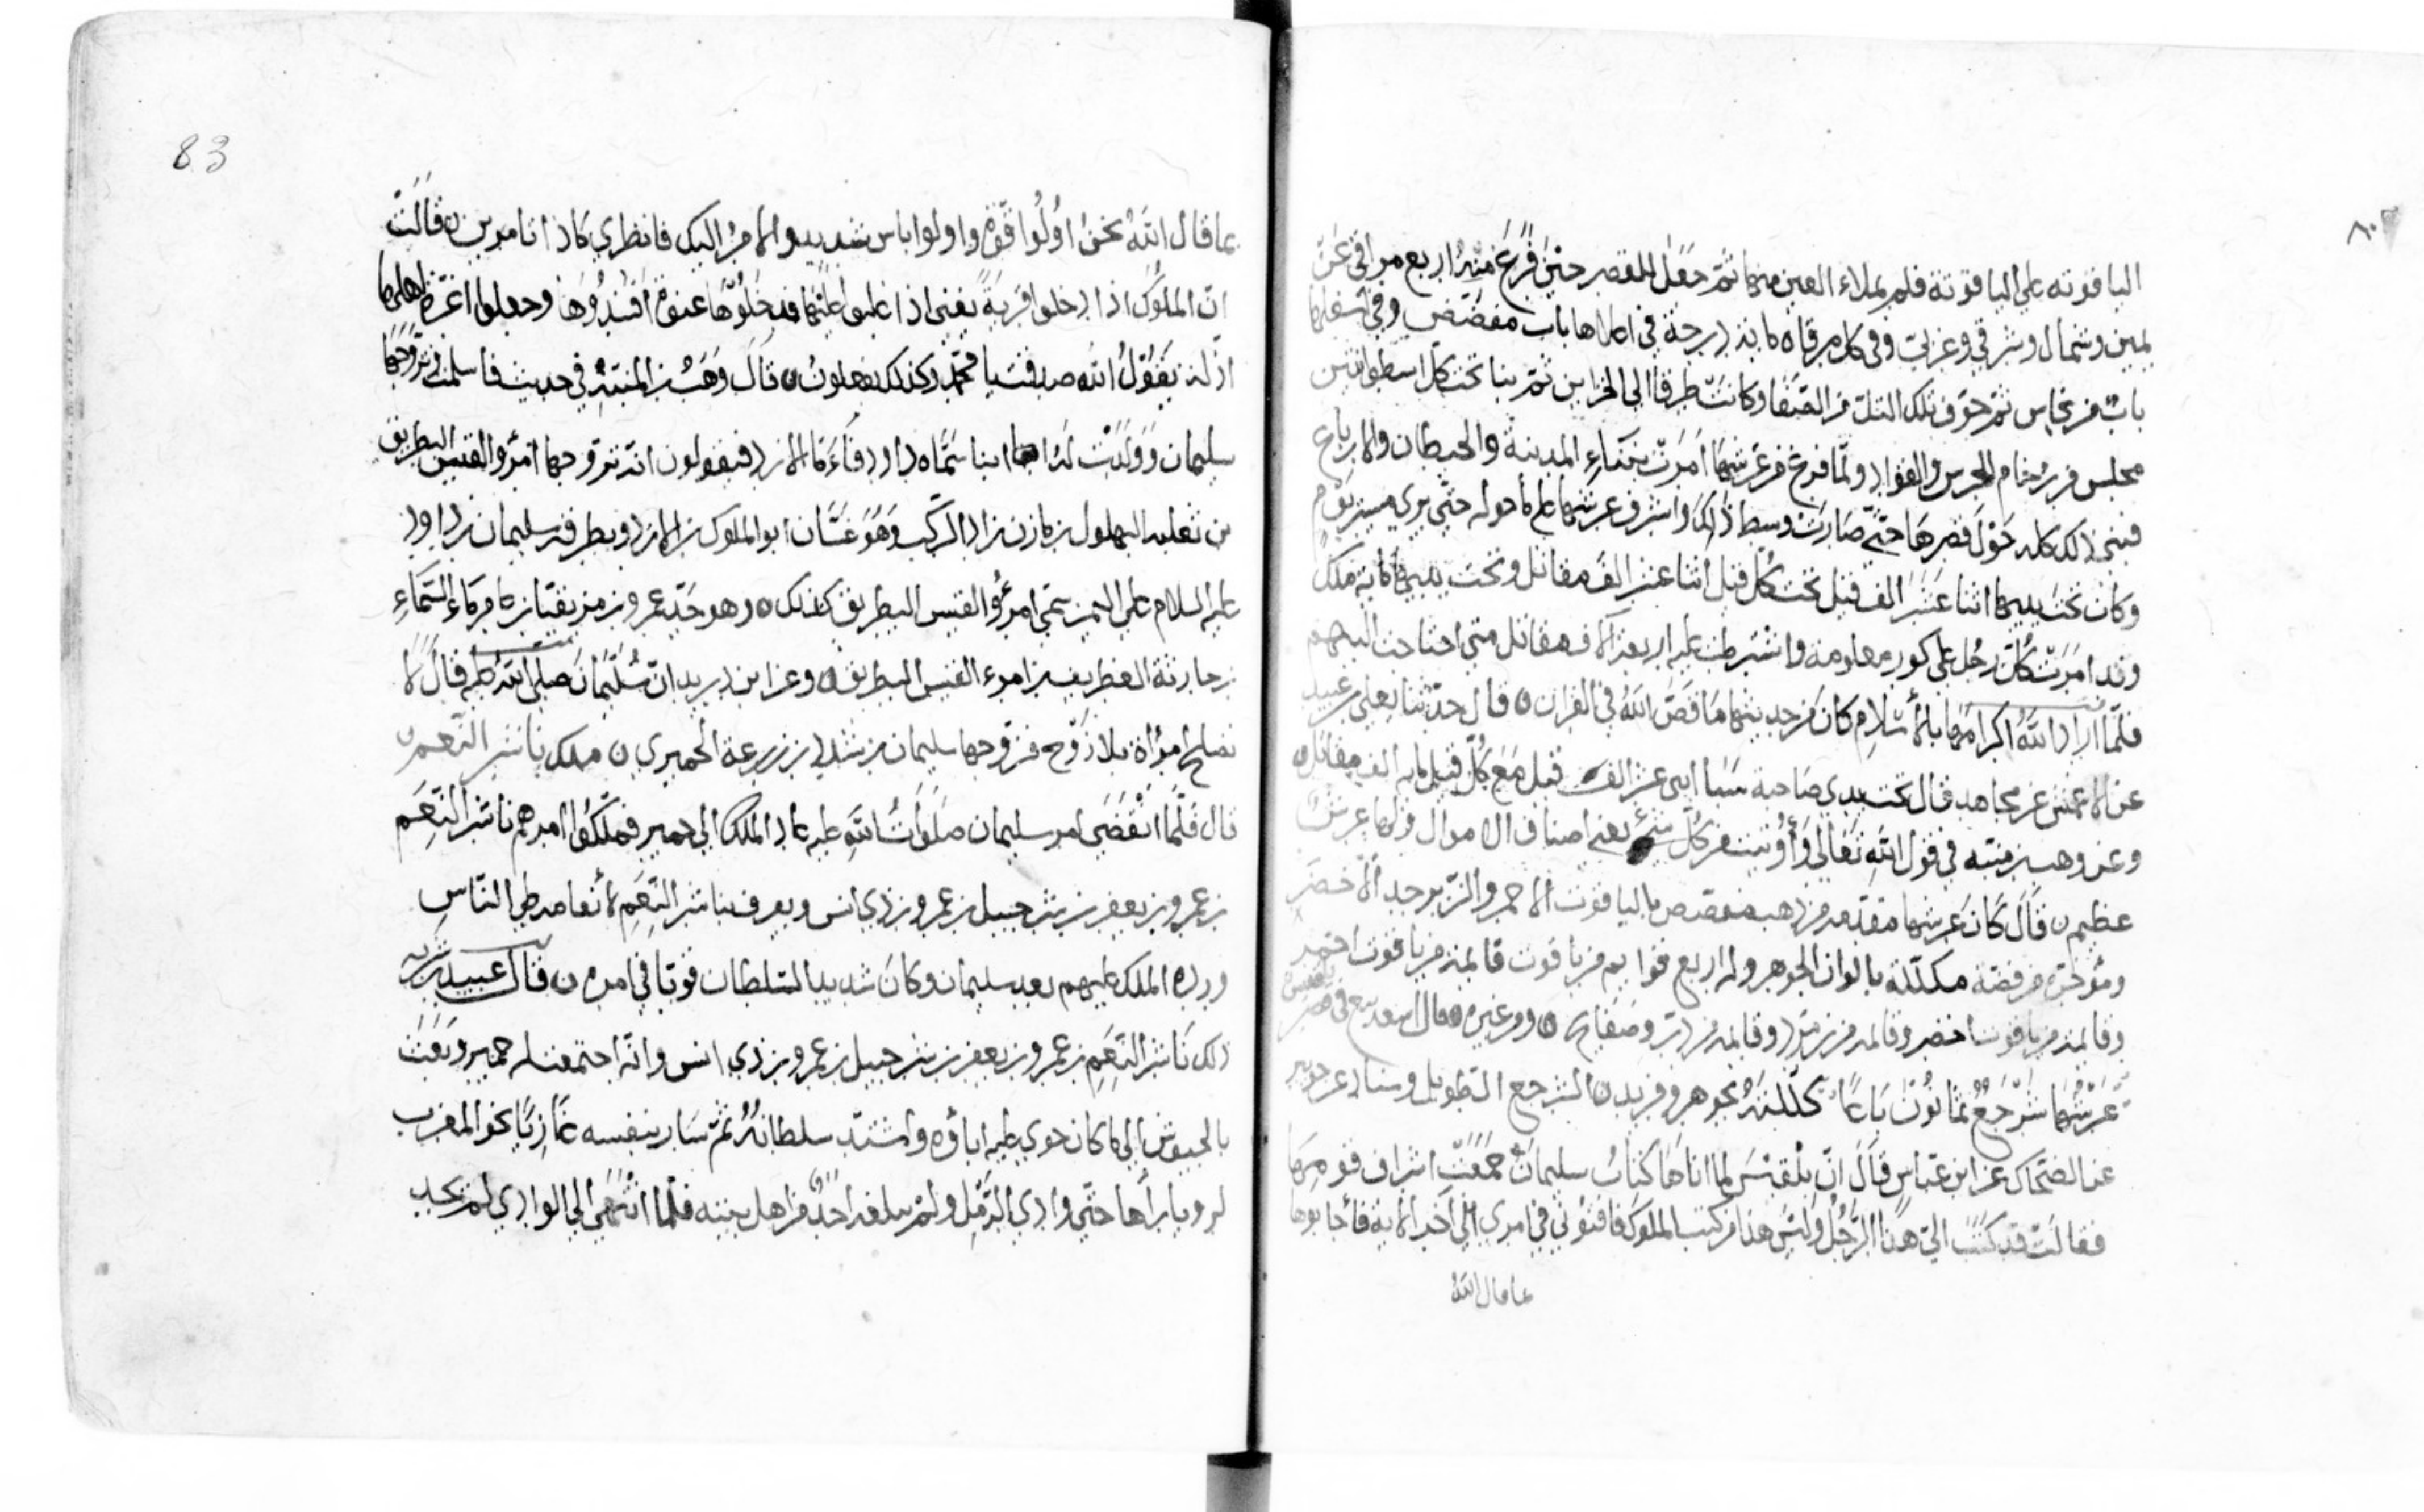 الياقوته على الياقوتة فلم يملاء العين منها ثم جعل للقصر حين فرغ منه اربع مراقي عن
يمين وشمال وشرقي وغربي وفي كل مرقاه مايه درجة في اعلاها باب مفضض وفي اسفلها
باب من نحاس ثم جوف تلك التلّ من الصفا وكانت طرقا الى الخزاين ثم بنا تحت كل اسطوانتين
مجلس من رخام للحرس والقواد ولما فرغ من عرشها امرت ببناء المدينة والحيطان والارباع
فبنى ذلك كله حول قصرها حتى صارت وسط ذلك واشرف عرشها على ما حوله حتى يرى مسير يوم
وكان تحت يديها اثنا عشر الف قيل تحت كل قيل اثنا عشر الف مقاتل وتحت يديها مايه ملك
وقد امرت كل رجل على كور معلومة واشترطت عليه اربعة آلاف مقاتل متى احتاجت اليهم
فلما اراد الله اكرامها بالاسلام كان من حديثها ما قص الله في القران ٥ قال حدثنا يعلى بن عبيد
عن الاعمش عن مجاهد قال تحت يدي صاحبة سبا اثنى عشر الف قيل مع كل قيل مايه الف مقاتل ٥
وعن وهب بن منبه في قول الله تعالى وأوتيت من كل شيء يعني اصناف الاموال ولها عرش
عظيم ن قال كان عرشها مقدمه من ذهب مفصص بالياقوت الاحمر والزبرجد الاخضر
ومؤخره من فضة مكللة بالوان الجوهر وله اربع قوايم من ياقوت قايمة من ياقوت احمر
وقايمة من ياقوت اخضر وقايمة من زمرد وقايمة من در وصفايح ٥ ومن غيره ٥ قال اسعد تبع في قصر بلقيس
عَرْشُها شَرْجَعٌ ثمانُونَ بَاعًا كَلَّلَتْهُ بجوهر وفريد ٥ الشرجع الطويل وسناد عن جويبر
عن الضحاك عن ابن عباس قال ان بلقيس لما اتاها كتاب سليمان جمعت اشراف قومها
فقالت قد كتب الي هذا الرجل وليس هذا من كتب الملوك فافتوني في امري الى اخر الاية فأجابوها
بما قال الله
83
بما قال الله نحن اولوا قوة واولوا باس شديد والامر اليك فانظري ماذا تامرين ن قالت
ان الملوك اذا دخلوا قرية يعني اذا غلبوا عليها فدخلوها عنوة افسدوها وجعلوا اعزة اهلها
اذلة يقول الله صدقت يا محمد وكذلك يفعلون ٥ قال وهب بن المنبه في حديثه فاسلمت فتزوجها
سليمان وولدت له ابنا سماه داود فاما الازد فيقولون انه تزوجها امرؤ القيس البطريق
بن ثعلبه البهلول بن مازن بن زاد الركب وهو غسان ابو الملوك بن الازد وبطرقه سليمان بن داود
عليه السلام على اليمن سمي امرؤ القيس البطريق كذلك ٥ وهو جد عمرو بن مزيقيا بن عامر ماء السماء
بن حارثة الغطريف بن امرء القيس البطريق ٥ وعن ابن دريد ان سليمان صلى الله عليه قال لا
تصلح امرأة بلا زوج فزوجها سليمان من شدد بن زرعة الحميري ن ملك ناشر النعم ن
قال فلما انقضى امر سليمان صلوات الله عليه عاد الملك الى حمير فملكوا امرهم ناشر النعم
بن عمرو بن يعفر بن شرحبيل بن عمرو بن ذي انس ويعرف بناشر النعم لأنعامه على الناس
ورده الملك عليهم بعد سليمان وكان شديد السلطان قويا في امره ن قال عبيد بن شريه
ذلك ناشر النعم بن عمرو بن يعفر بن شرحبيل بن عمرو بن ذي انس وانه اجتمعت له حمير وبعث
بالجيوش الى ما كان حوي عليه اباؤه واشتد سلطانه ثم سار بنفسه غازيا نحو المغرب
لرويا رأها حتى وادي الرمل ولم يبلغه احد من اهل بيته فلما انتهى الى الوادي لم يجد